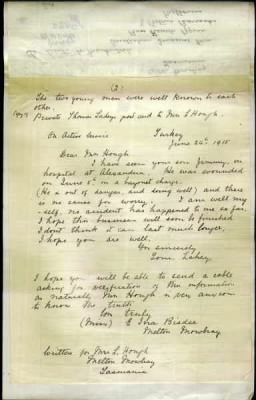 (2)
The two young men were well known to each
other.
Private Thomas Lahey's post card to Mrs S Hough.
On Active Service Turkey
June 24th 1915
Dear Mrs Hough
I have seen your son Jimmy, in
hospital at Alexandria. He was wounded
on June 5th in a bayonet charge.
(He is out of danger, and doing well) and there
is no cause for worry. I am well my
-self, no accident has happened to me so far.
I hope this business will soon be finished
I don't think it can last much longer,
I hope you are well.
Yrs sincerely
Tom Lahey.
I hope you will be able to send a cable
asking for verification of this information
as naturally Mrs Hough is very anxious
to know the truth
Yrs truly
(Miss) E Iva Bisdee
Melton Mowbray
Written for Mrs S. Hough
Melton Mowbray
Tasmania